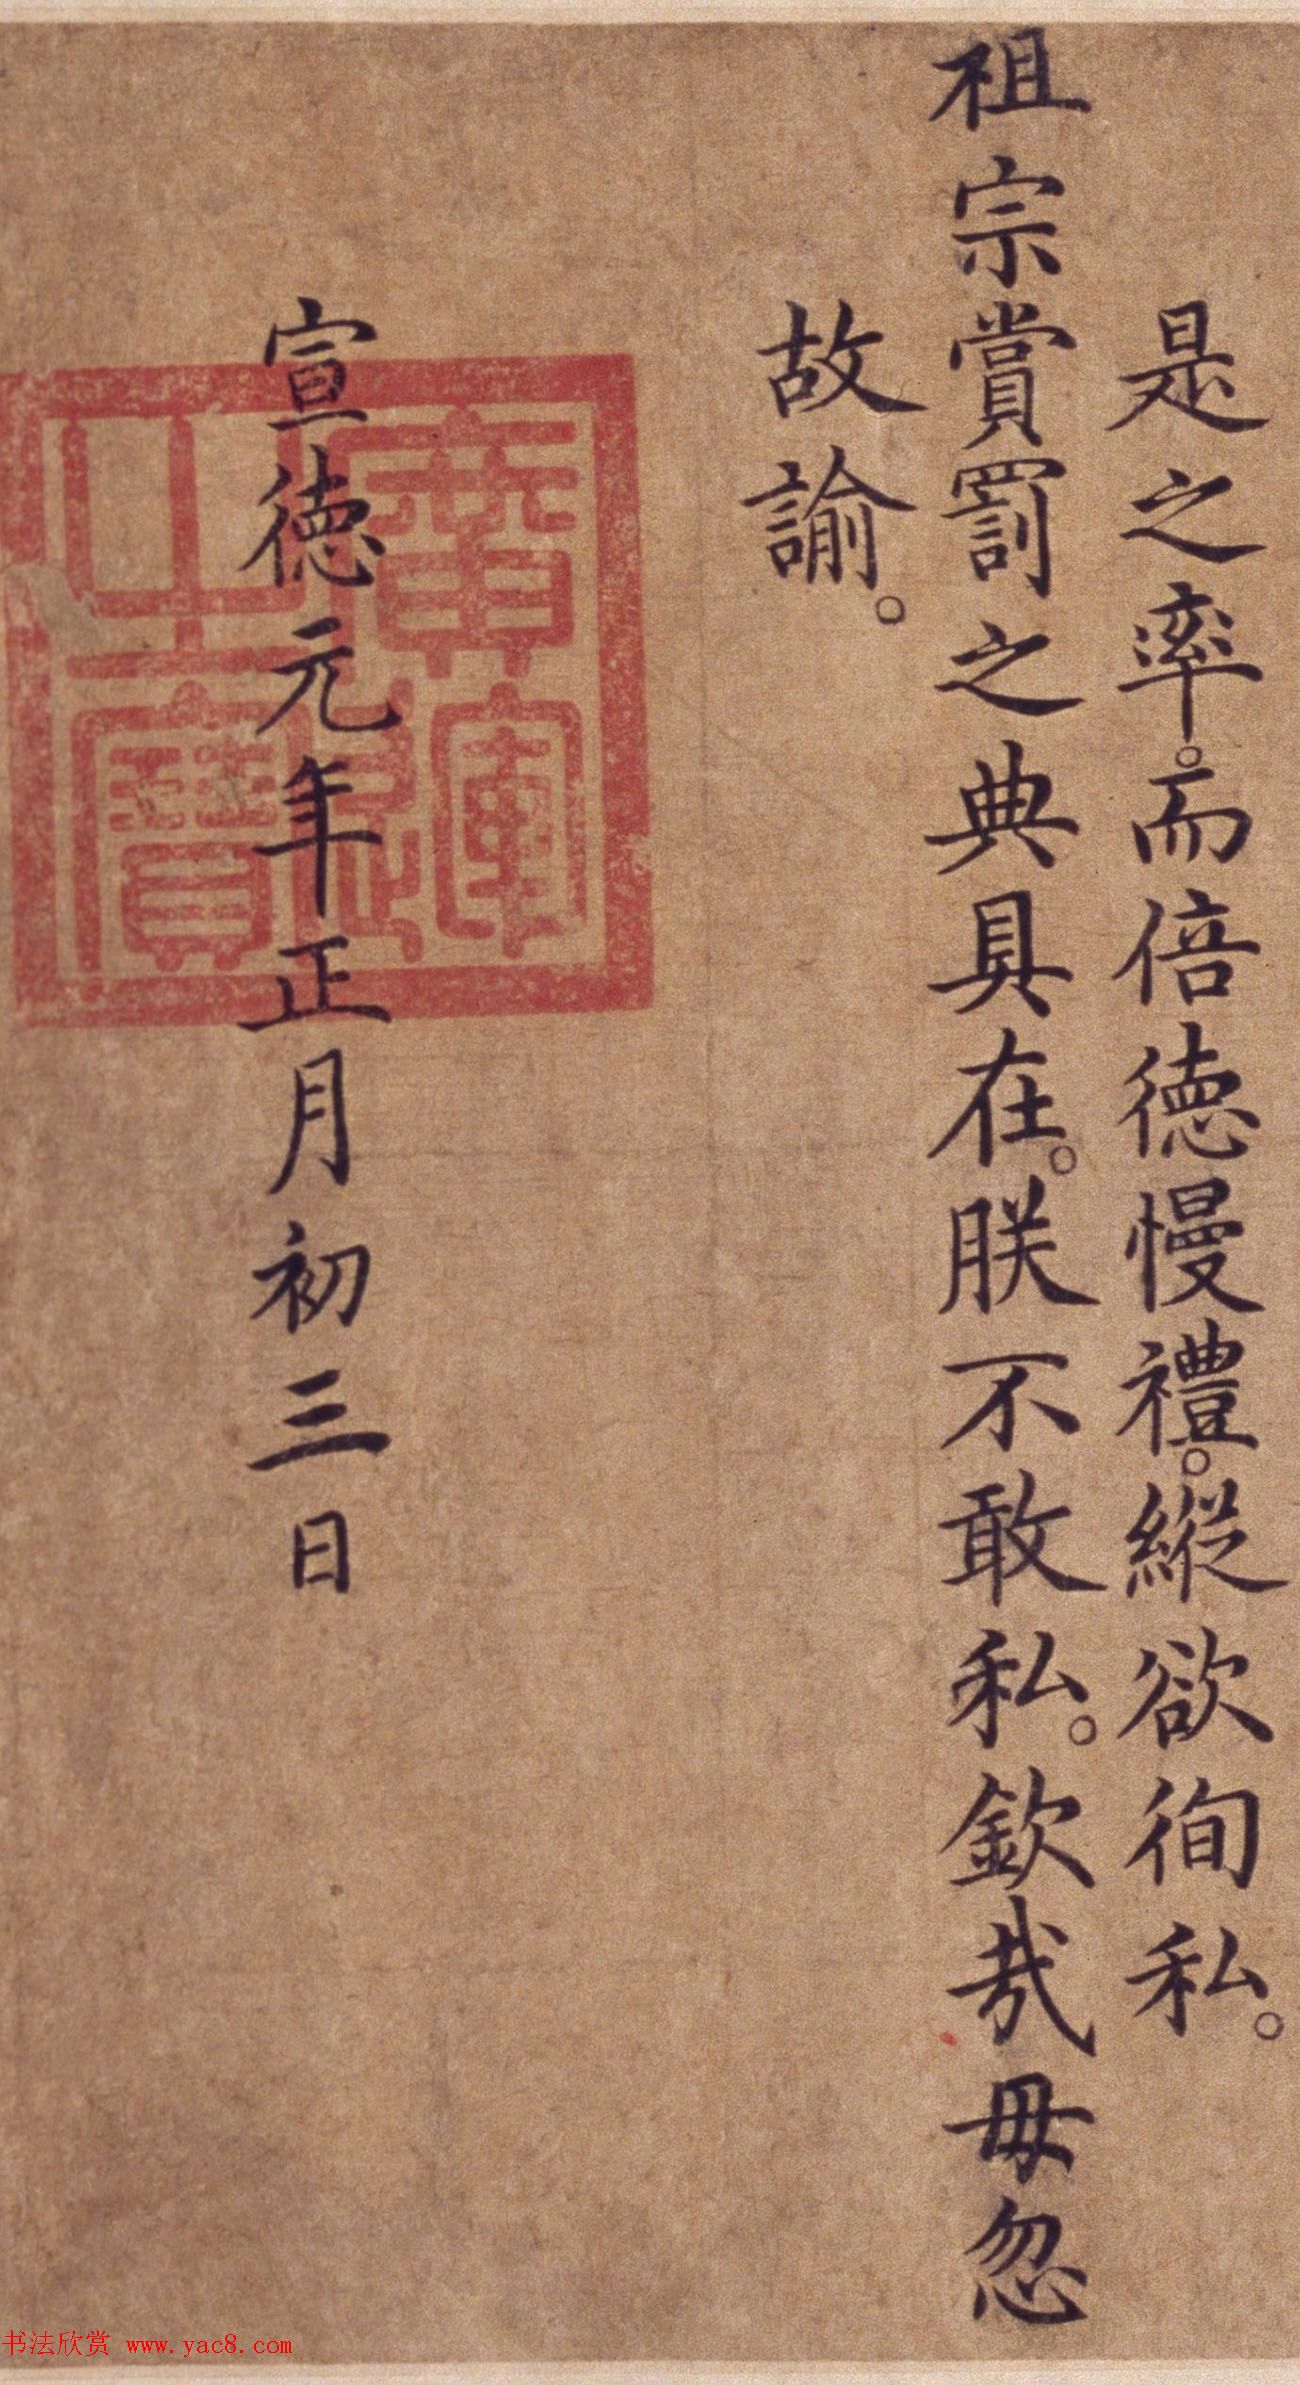 是之率。而倍德慢禮。縱欲徇私。
祖宗賞罰之典具在。朕不敢私。欽哉毋忽
故諭。
宣德元年正月初三日
廣運之寶
书法欣赏 www.yac8.com